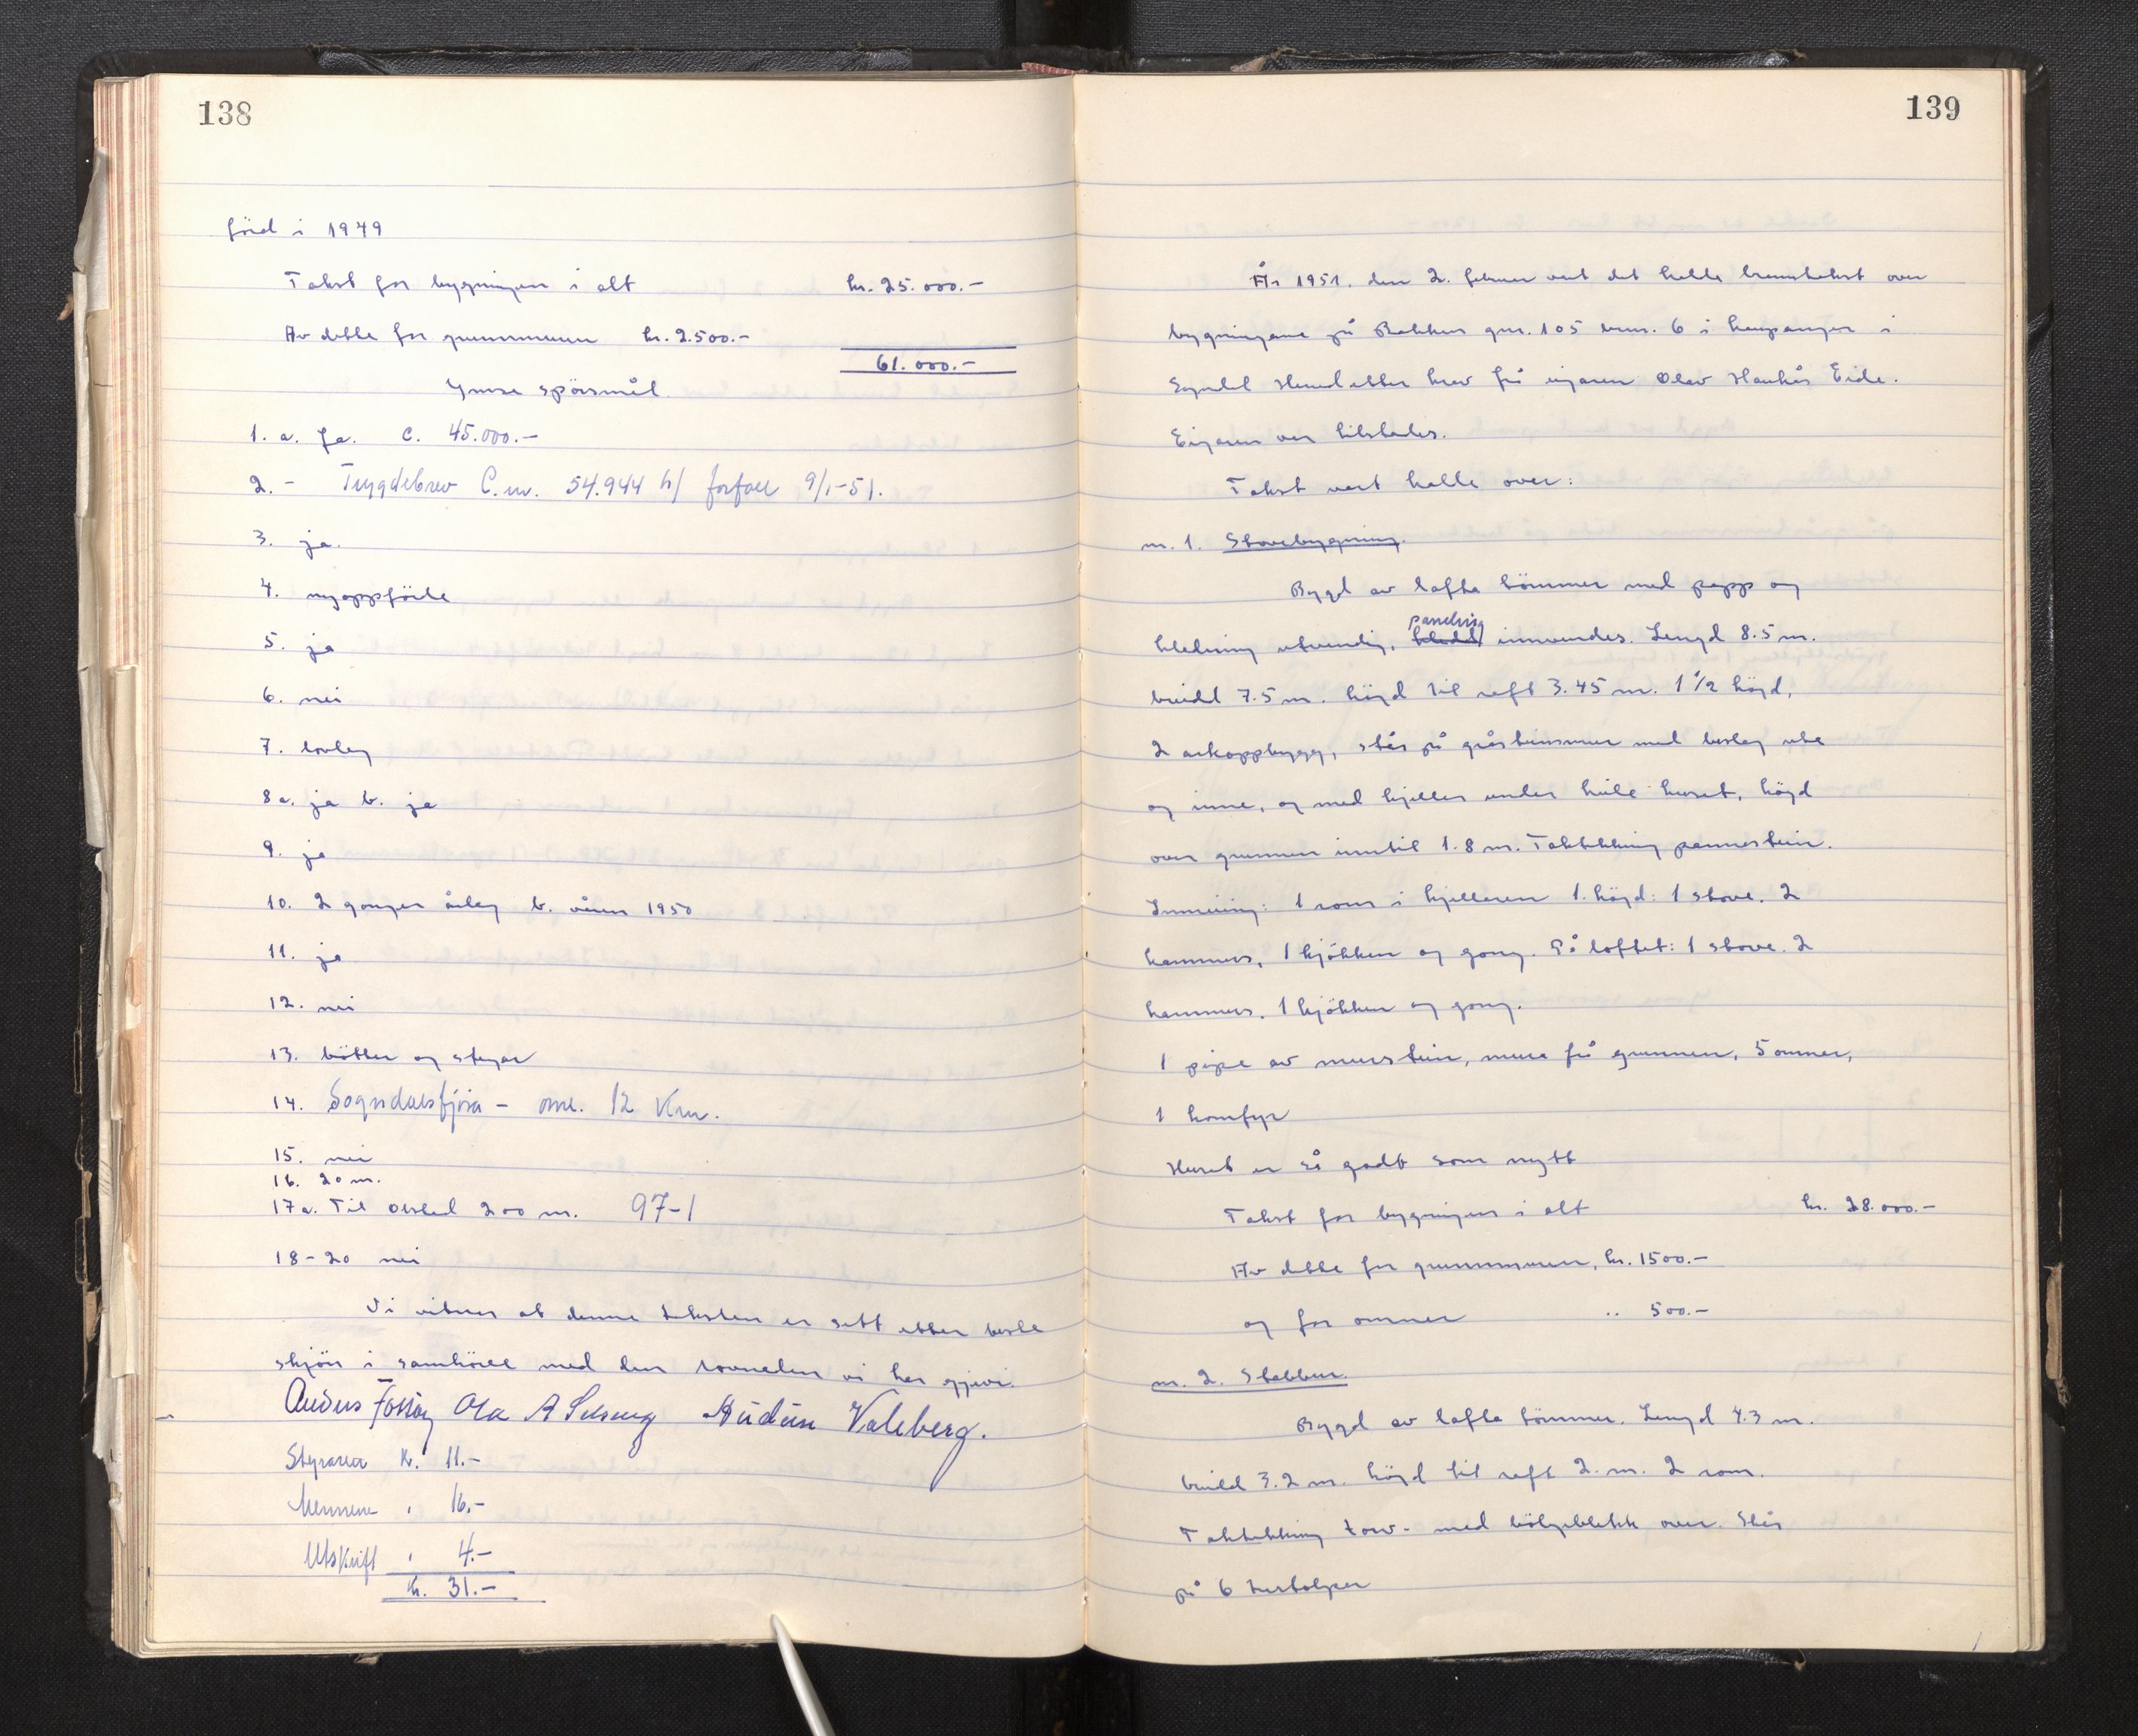 138
förd i 1949
Takst for bygningen i alt kr. 25.000.-
Av dette for grunnmuren kr. 2.500.-
61.000.-
Ymse spörsmål.
1. a. Ja. C. 45.000.-
2. - Trygdebrev C. nr. 54.944 forfall 9/1-51.
3. ja.
4. nyoppförde
5. ja
6. nei
7. lovleg
8a. ja b. ja
9. ja
10. 2 gonger årleg b. våren 1950
11. ja
12. nei
13. bötter og stegar
14. Sogndalsfjöra - oml. 12 Km.
15. nei
16. 20 m.
17a. Til 200 m. 97-1
18-20 nei
Vi vitnar at denne taksten er sett etter beste
skjön i samhöve med den lovnaden vi har gjeve.
Ola A Selseng Audun Valeberg.
Styraren kr. 11.-
Mennene " 16.-
Utskrift " 4.-
Kr. 31.-
139
År 1951. den 2. februar vart det halde branntakst over
bygningane på Bakken gnr. 105 bnr. 6 i Kaupanger i
Sogndal Herad etter krav frå eigaren Olav Haukås Eide.
Eigaren var tilstades.
Takst vart halde over:
nr. 1. Stovebygning.
Bygd av lafta tömmer med papp og
kledning utvendig, paneling innvendes. Lengd 8.5 m.
breidd 7.5 m. högd til raft 3.45 m. 1 1/2 högd,
2 arkoppbygg, står på gråsteinsmur med beslag ute
og inne, og med kjeller under heile huset, högd
over grunnen inntil 1.8 m. Taktekking pannestein.
Innreiing: 1 rom i kjelleren 1. högd: 1 stove. 2
kammers, 1 kjökken og gong. På loftet: 1 stove. 2
kammers, 1 kjökken og gong.
1 pipe av murstein, mura frå grunnen, 5 omner,
1 komfyr
Huset er så godt som nytt
Takst for bygningen i alt kr. 28.000.-
Av dette for grunnmuren, kr. 1500.-
og for omner " 500.-
nr. 2. Stabbur.
Bygd av lafta tömmer. Lengd 4.3 m.
breidd 3.2 m. högd til raft 2. m. 2 rom.
Taktekking torv- med bölgeblekk over. Står
på 6 trestolper